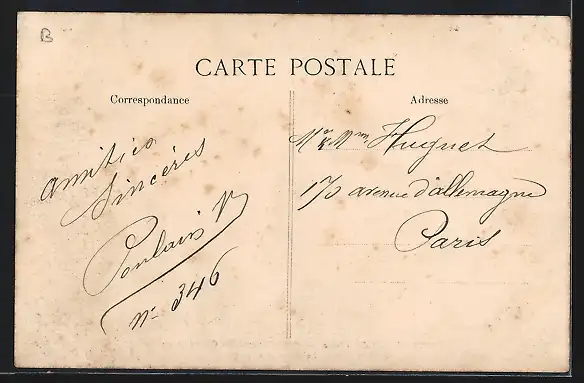 B
CARTE POSTALE
Correspondance
amitiés
sincères
Poulain V
N° 346
Adresse
Mr & Mme Huguet
170 avenue d'allemagne
Paris